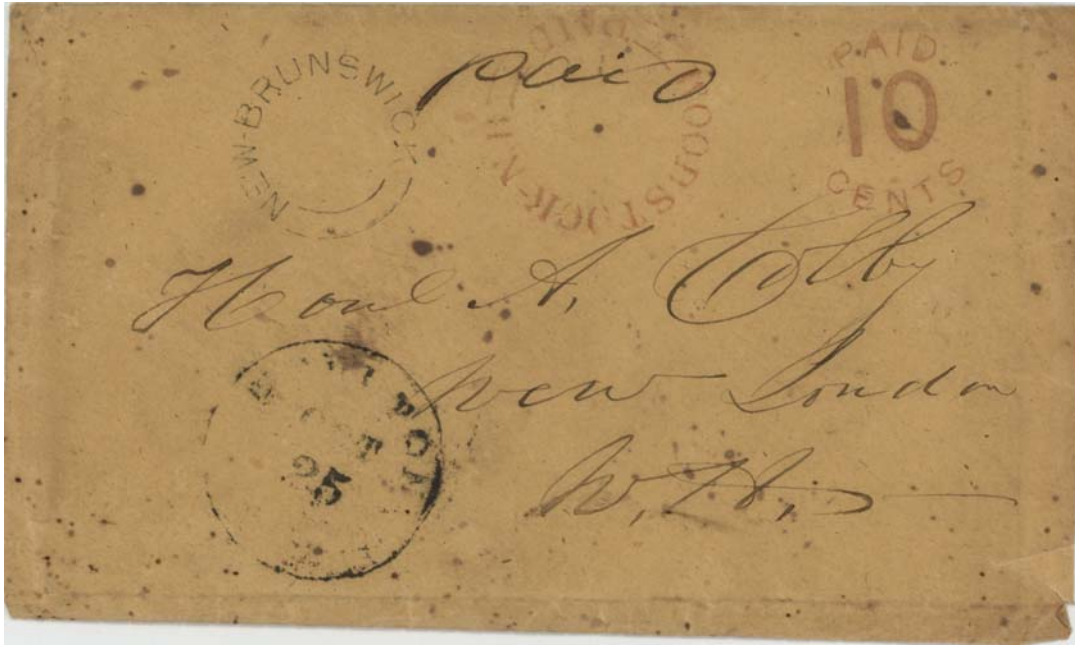 NEW-BRUNSWICK
paid
PAID
WOODSTOCK·N.B.
PAID
10
CENTS
Honl A. Colby
New London
N. H.
OCT
25